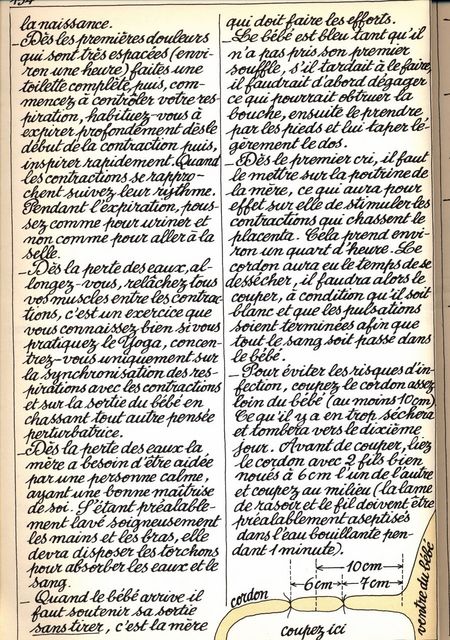 la naissance.
_Dès les premières douleurs
qui sont très espacées (envi-
ron une heure) faites une
toilette complète, puis, com-
mencez à contrôler votre res-
piration, habituez-vous à
expirer profondément dès le
début de la contraction puis,
inspirer rapidement. Quand
les contractions se rappro-
chent suivez leur rythme.
Pendant l'expiration, pous-
sez comme pour uriner et
non comme pour aller à la
selle.
_Dès la perte des eaux, al-
longez-vous, relâchez tous
vos muscles entre les contrac-
tions, c'est un exercice que
vous connaissez bien si vous
pratiquez le Yoga, concen-
trez-vous uniquement sur
la synchronisation des res-
pirations avec les contractions
et sur la sortie du bébé en
chassant tout autre pensée
perturbatrice.
_Dès la perte des eaux la
mère a besoin d'être aidée
par une personne calme,
ayant une bonne maîtrise
de soi. S'étant préalable-
ment lavé soigneusement
les mains et les bras, elle
devra disposer les torchons
pour absorber les eaux et le
sang.
_Quand le bébé arrive il
faut soutenir sa sortie
sans tirer, c'est la mère
qui doit faire les efforts.
_Le bébé est bleu tant qu'il
n'a pas pris son premier
souffle, s'il tardait à le faire,
il faudrait d'abord dégager
ce qui pourrait obtruer la
bouche, ensuite le prendre
par les pieds et lui taper lé-
gèrement le dos.
_Dès le premier cri, il faut
le mettre sur la poitrine de
la mère, ce qui aura pour
effet sur elle de stimuler les
contractions qui chassent le
placenta. Cela prend envi-
ron un quart d'heure. Le
cordon aura eu le temps de se
dessécher, il faudra alors le
couper, à condition qu'il soit
blanc et que les pulsations
soient terminées afin que
tout le sang soit passé dans
le bébé.
_Pour éviter les risques d'in-
fection, coupez le cordon assez
loin du bébé (au moins 10cm)
Ce qu'il y a en trop séchera
et tombera vers le dixième
jour. Avant de couper, liez
le cordon avec 2 fils bien
noués à 6cm l'un de l'autre
et coupez au milieu (la lame
de rasoir et le fil doivent être
préalablement aseptisés
dans l'eau bouillante pen-
dant 1 minute).
10cm
6cm 7cm
cordon
coupez ici
ventre du bébé